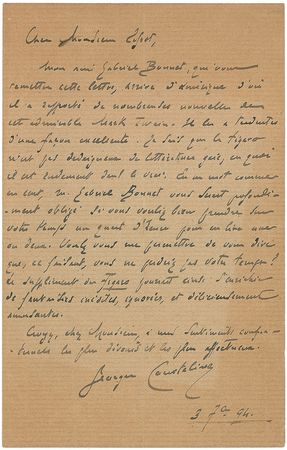 Cher Monsieur
Mon ami Gabriel Bonnet, qui vous
remettra cette lettre, arrive d'Amérique d'où
il a rapporté de nombreuses nouvelles de
cet admirable Mark Twain. Il les a traduites
d'une façon excellente. Je sais que le Figaro
n'est pas dédaigneux de littérature gaie, en quoi
il est entièrement dans le vrai. En un mot comme
en cent, M. Gabriel Bonnet vous serait profondé-
-ment obligé si vous vouliez bien prendre sur
votre temps un quart d'heure pour en lire une
ou deux. Voulez vous me permettre de vous dire
que, ce faisant, vous ne perdrez pas votre temps?
Le supplément du Figaro pourrait ainsi s'enrichir
de fantaisies inédites, ignorées, et délicieusement
amusantes.
Croyez, cher Monsieur, à mes sentiments confra-
-ternels les plus dévoués et les plus affectueux.
Georges
3 7bre 94.